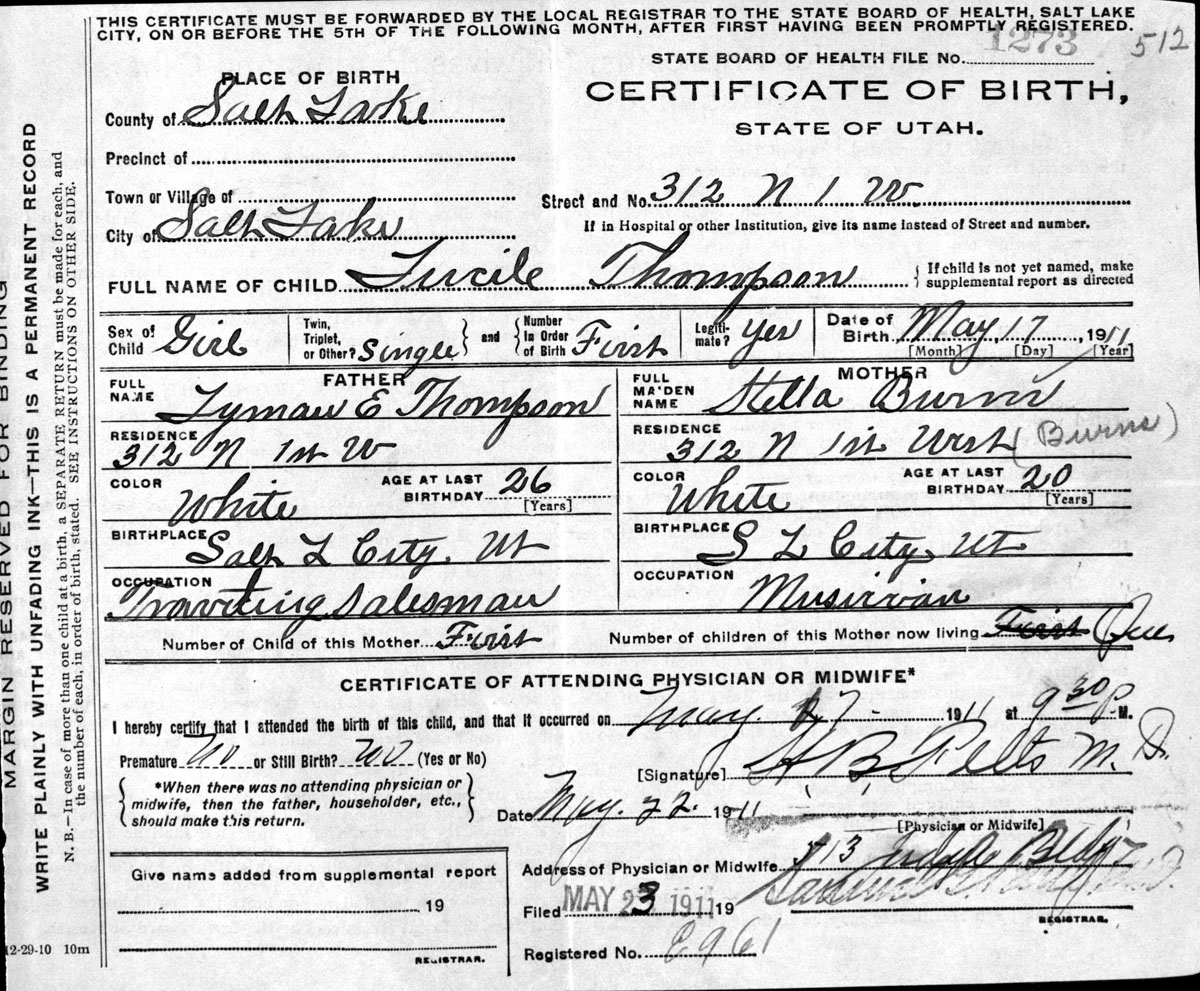 THIS CERTIFICATE MUST BE FORWARDED BY THE LOCAL REGISTRAR TO THE STATE BOARD OF HEALTH, SALT LAKE
CITY, ON OR BEFORE THE 5TH OF THE FOLLOWING MONTH, AFTER FIRST HAVING BEEN PROMPTLY REGISTERED.
1273 512
STATE BOARD OF HEALTH FILE No.
PLACE OF BIRTH
CERTIFICATE OF BIRTH,
STATE OF UTAH.
County of Salt Lake
Precinct of
Town or Village of
Street and No. 312 N 1 W
City of Salt Lake
If in Hospital or other Institution, give its name instead of Street and number.
FULL NAME OF CHILD Lucile Thompson
If child is not yet named, make
supplemental report as directed
Sex of Child Girl
Twin, Triplet, or Other? Single
and
Number In Order of Birth First
Legiti-mate? Yes
Date of Birth May 17, 1911
[Month] [Day] [Year]
FATHER
FULL NAME Lyman E Thompson
RESIDENCE 312 N 1st W
COLOR White
AGE AT LAST BIRTHDAY 26 [Years]
BIRTHPLACE Salt L City, Ut
OCCUPATION Traveling Salesman
MOTHER
FULL MAIDEN NAME Stella Burns
RESIDENCE 312 N 1st West (Burns)
COLOR White
AGE AT LAST BIRTHDAY 20 [Years]
BIRTHPLACE S L City, Ut
OCCUPATION Musician
Number of Child of this Mother First
Number of children of this Mother now living First One
CERTIFICATE OF ATTENDING PHYSICIAN OR MIDWIFE*
I hereby certify that I attended the birth of this child, and that it occurred on May 17 - 1911 at 9 30 P M.
Premature No or Still Birth? No (Yes or No)
[Signature] M. D.
*When there was no attending physician or
midwife, then the father, householder, etc.,
should make this return.
Date May. 22. 1911
[Physician or Midwife]
Address of Physician or Midwife 513 Judge Bldg
Give name added from supplemental report
19
REGISTRAR.
Filed MAY 23 1911 19
REGISTRAR.
Registered No. E961
12-29-10 10m
MARGIN RESERVED FOR BINDING
WRITE PLAINLY WITH UNFADING INK—THIS IS A PERMANENT RECORD
N. B.—In case of more than one child at a birth, a SEPARATE RETURN must be made for each, and
the number of each, in order of birth, stated. SEE INSTRUCTIONS ON OTHER SIDE.